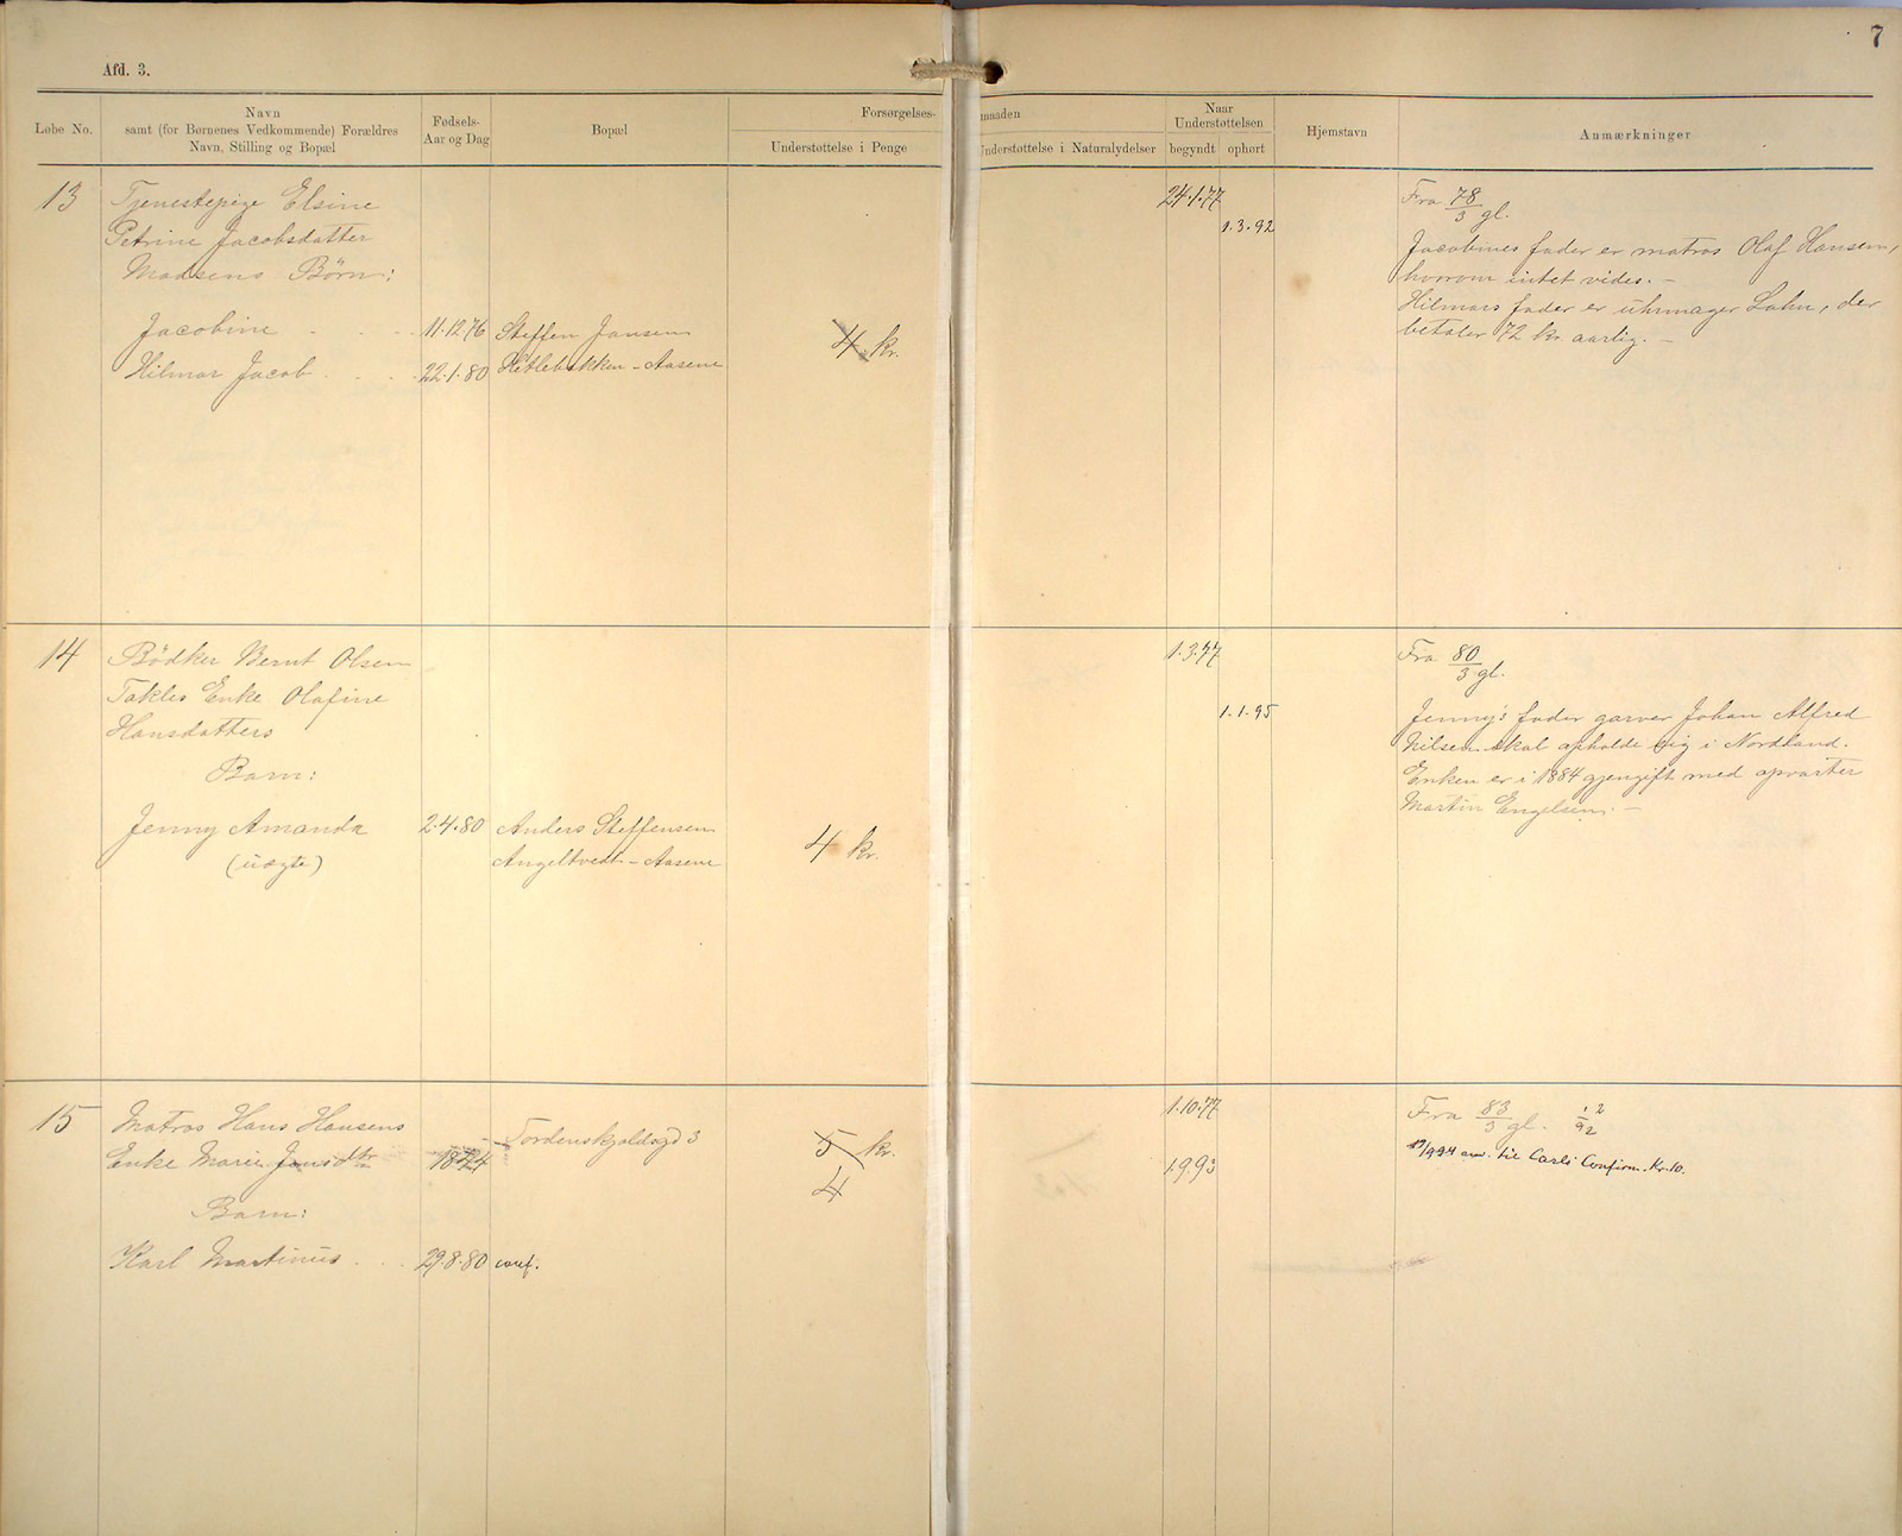 7
Afd. 3.
Løbe No.
Navn
samt (for Børnenes Vedkommende) Forældres
Navn, Stilling og Bopæl
Fødsels-
Aar og Dag
Bopæl
Forsørgelses-
maaden
Understøttelse i Penge
Understøttelse i Naturalydelser
Naar
Understøttelsen
begyndt
ophørt
Hjemstavn
Anmærkninger
13
Tjenestepige Elsine
Petrine Jacobsdatter
Madsens Børn:
Jacobine
11.12.76
Hilmar Jacob
22.1.80
Steffen Jansen
Hetlebakken - Aasene
4 kr.
24.1.77
1.3.92
Fra 78/3 gl.
Jacobines fader er matros Olaf Hansen,
hvorom intet vides. -
Hilmars fader er uhrmager Lahn, der
betaler 72 kr. aarlig. -
14
Bödker Bernt Olsen
Takles Enke Olafine
Hansdatters
Barn:
Jenny Amanda
(uægte)
2.4.80
Anders Steffensen
Angeltvedt - Aasene
4 kr.
1.3.77
1.1.95
Fra 80/3 gl.
Jenny's fader garver Johan Alfred
Nilsen skal opholde sig i Nordland.
Enken er i 1884 gjengift med opvarter
Martin Engelsen. -
15
Matros Hans Hansens
Enke Marie Jonsdtr
Barn:
Karl Martinus
29.8.80
conf.
Tordenskjoldsgd 3
5 kr.
4
1.10.77
1.9.93
Fra 83/3 gl.
til Carls Confirm. Kr. 10.